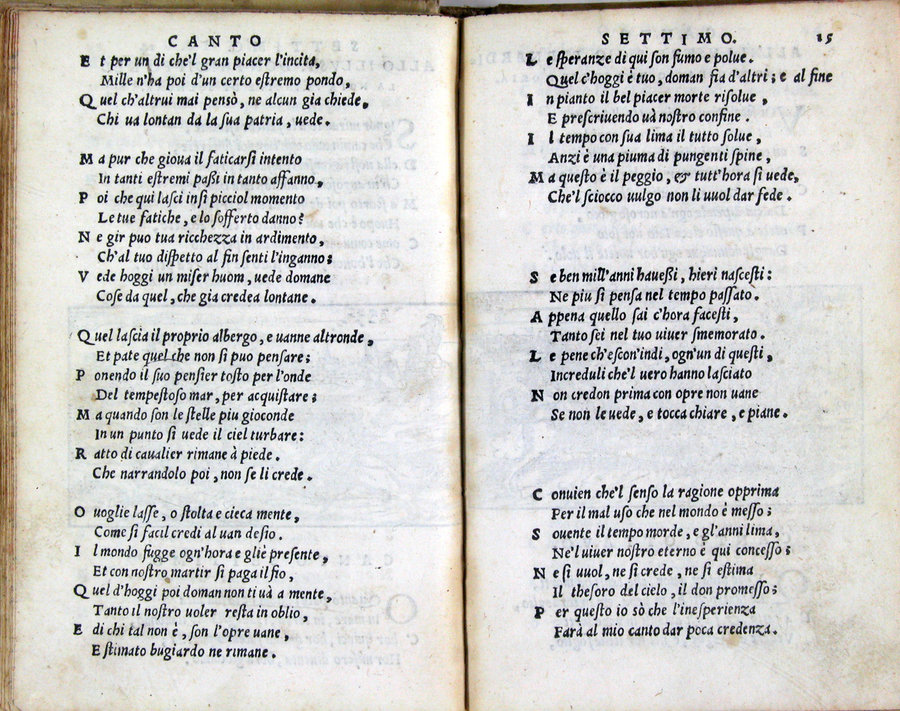 CANTO
Et per un di che'l gran piacer l'incita,
Mille n'ha poi d'un certo estremo pondo,
Quel ch'altrui mai pensò, ne alcun gia chiede,
Chi ua lontan da la sua patria, uede.
Ma pur che gioua il faticarsi intento
In tanti estremi passi in tanto affanno,
Poi che qui lasci in sì picciol momento
Le tue fatiche, e lo sofferto danno?
Ne gir puo tua ricchezza in ardimento,
Ch'al tuo dispetto al fin senti l'inganno;
Vede hoggi un miser huom, uede domane
Cose da quel, che gia credea lontane.
Quel lascia il proprio albergo, e uanne altronde,
Et pate quel che non si puo pensare;
Ponendo il suo pensier tosto per l'onde
Del tempestoso mar, per acquistare;
Ma quando son le stelle piu gioconde
In un punto si uede il ciel turbare:
Ratto di caualier rimane à piede.
Che narrandolo poi, non se li crede.
O uoglie lasse, o stolta e cieca mente,
Come si facil credi al uan desio.
Il mondo fugge ogn'hora e gliè presente,
Et con nostro martir si paga il fio,
Quel d'hoggi poi doman non ti uà a mente,
Tanto il nostro uoler resta in oblio,
E di chi tal non è, son l'opre uane,
E stimato bugiardo ne rimane.
SETTIMO. 15
Le speranze di qui son fumo e polue.
Quel c'hoggi è tuo, doman fia d'altri; e al fine
In pianto il bel piacer morte risolue,
E prescriuendo uà nostro confine.
Il tempo con sua lima il tutto solue,
Anzi è una piuma di pungenti spine,
Ma questo è il peggio, & tutt'hora si uede,
Che'l sciocco uulgo non li uuol dar fede.
Se ben mill'anni hauessi, hieri nascesti:
Ne piu si pensa nel tempo passato.
Appena quello sai c'hora facesti,
Tanto sei nel tuo uiuer smemorato.
Le pene ch'escon'indi, ogn'un di questi,
Increduli che'l uero hanno lasciato
Non credon prima con opre non uane
Se non le uede, e tocca chiare, e piane.
Conuien che'l senso la ragione opprima
Per il mal uso che nel mondo è messo;
Souente il tempo morde, e gl'anni lima,
Ne'l uiuer nostro eterno è qui concesso;
Ne si uuol, ne si crede, ne si estima
Il thesoro del cielo, il don promesso;
Per questo io sò che l'inesperienza
Farà al mio canto dar poca credenza.